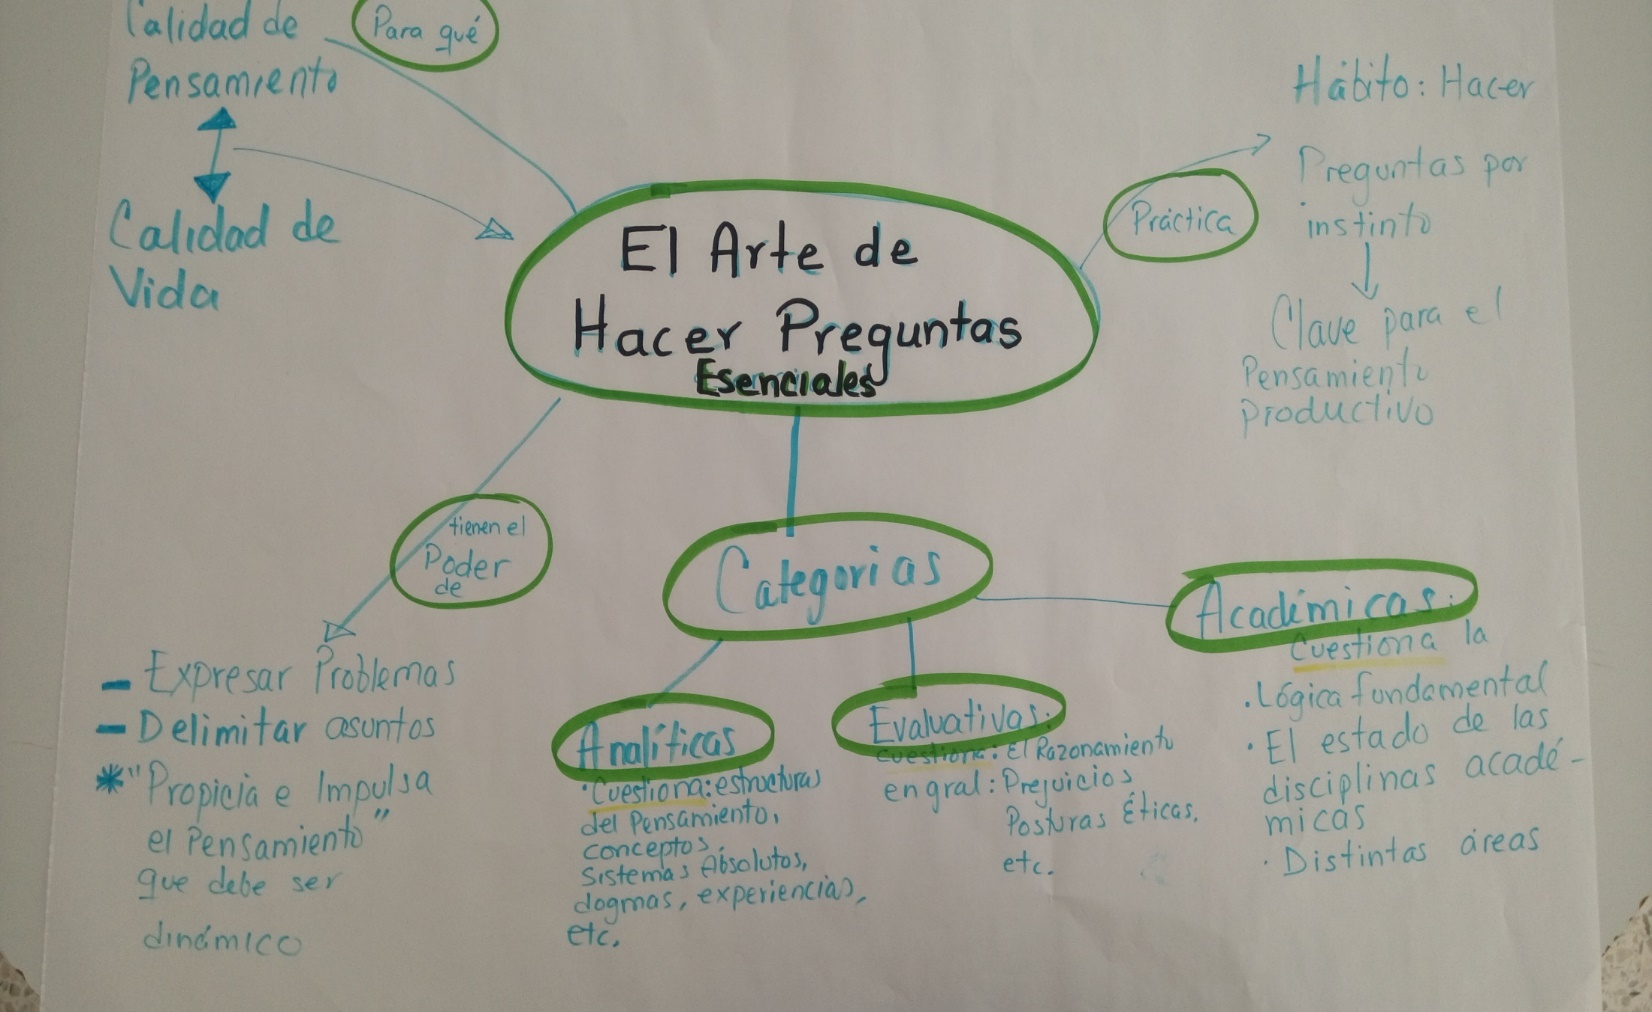 Calidad de
Pensamiento
Calidad de
Vida
Para qué
El Arte de
Hacer Preguntas
Esenciales
Práctica
Hábito: Hacer
Preguntas por
instinto
Clave para el
Pensamiento
productivo
tienen el
Poder
de
- Expresar Problemas
- Delimitar asuntos
* "Propicia e Impulsa
el Pensamiento"
que debe ser
dinámico
Categorias
Analíticas
· Cuestiona: estructuras
del Pensamiento,
conceptos,
Sistemas Absolutos,
dogmas, experiencias,
etc.
Evaluativas:
Cuestiona: El Razonamiento
en gral: Prejuicios
Posturas Éticas,
etc.
Académicas:
Cuestiona la
· Lógica fundamental
· El estado de las
disciplinas acadé-
micas
· Distintas áreas